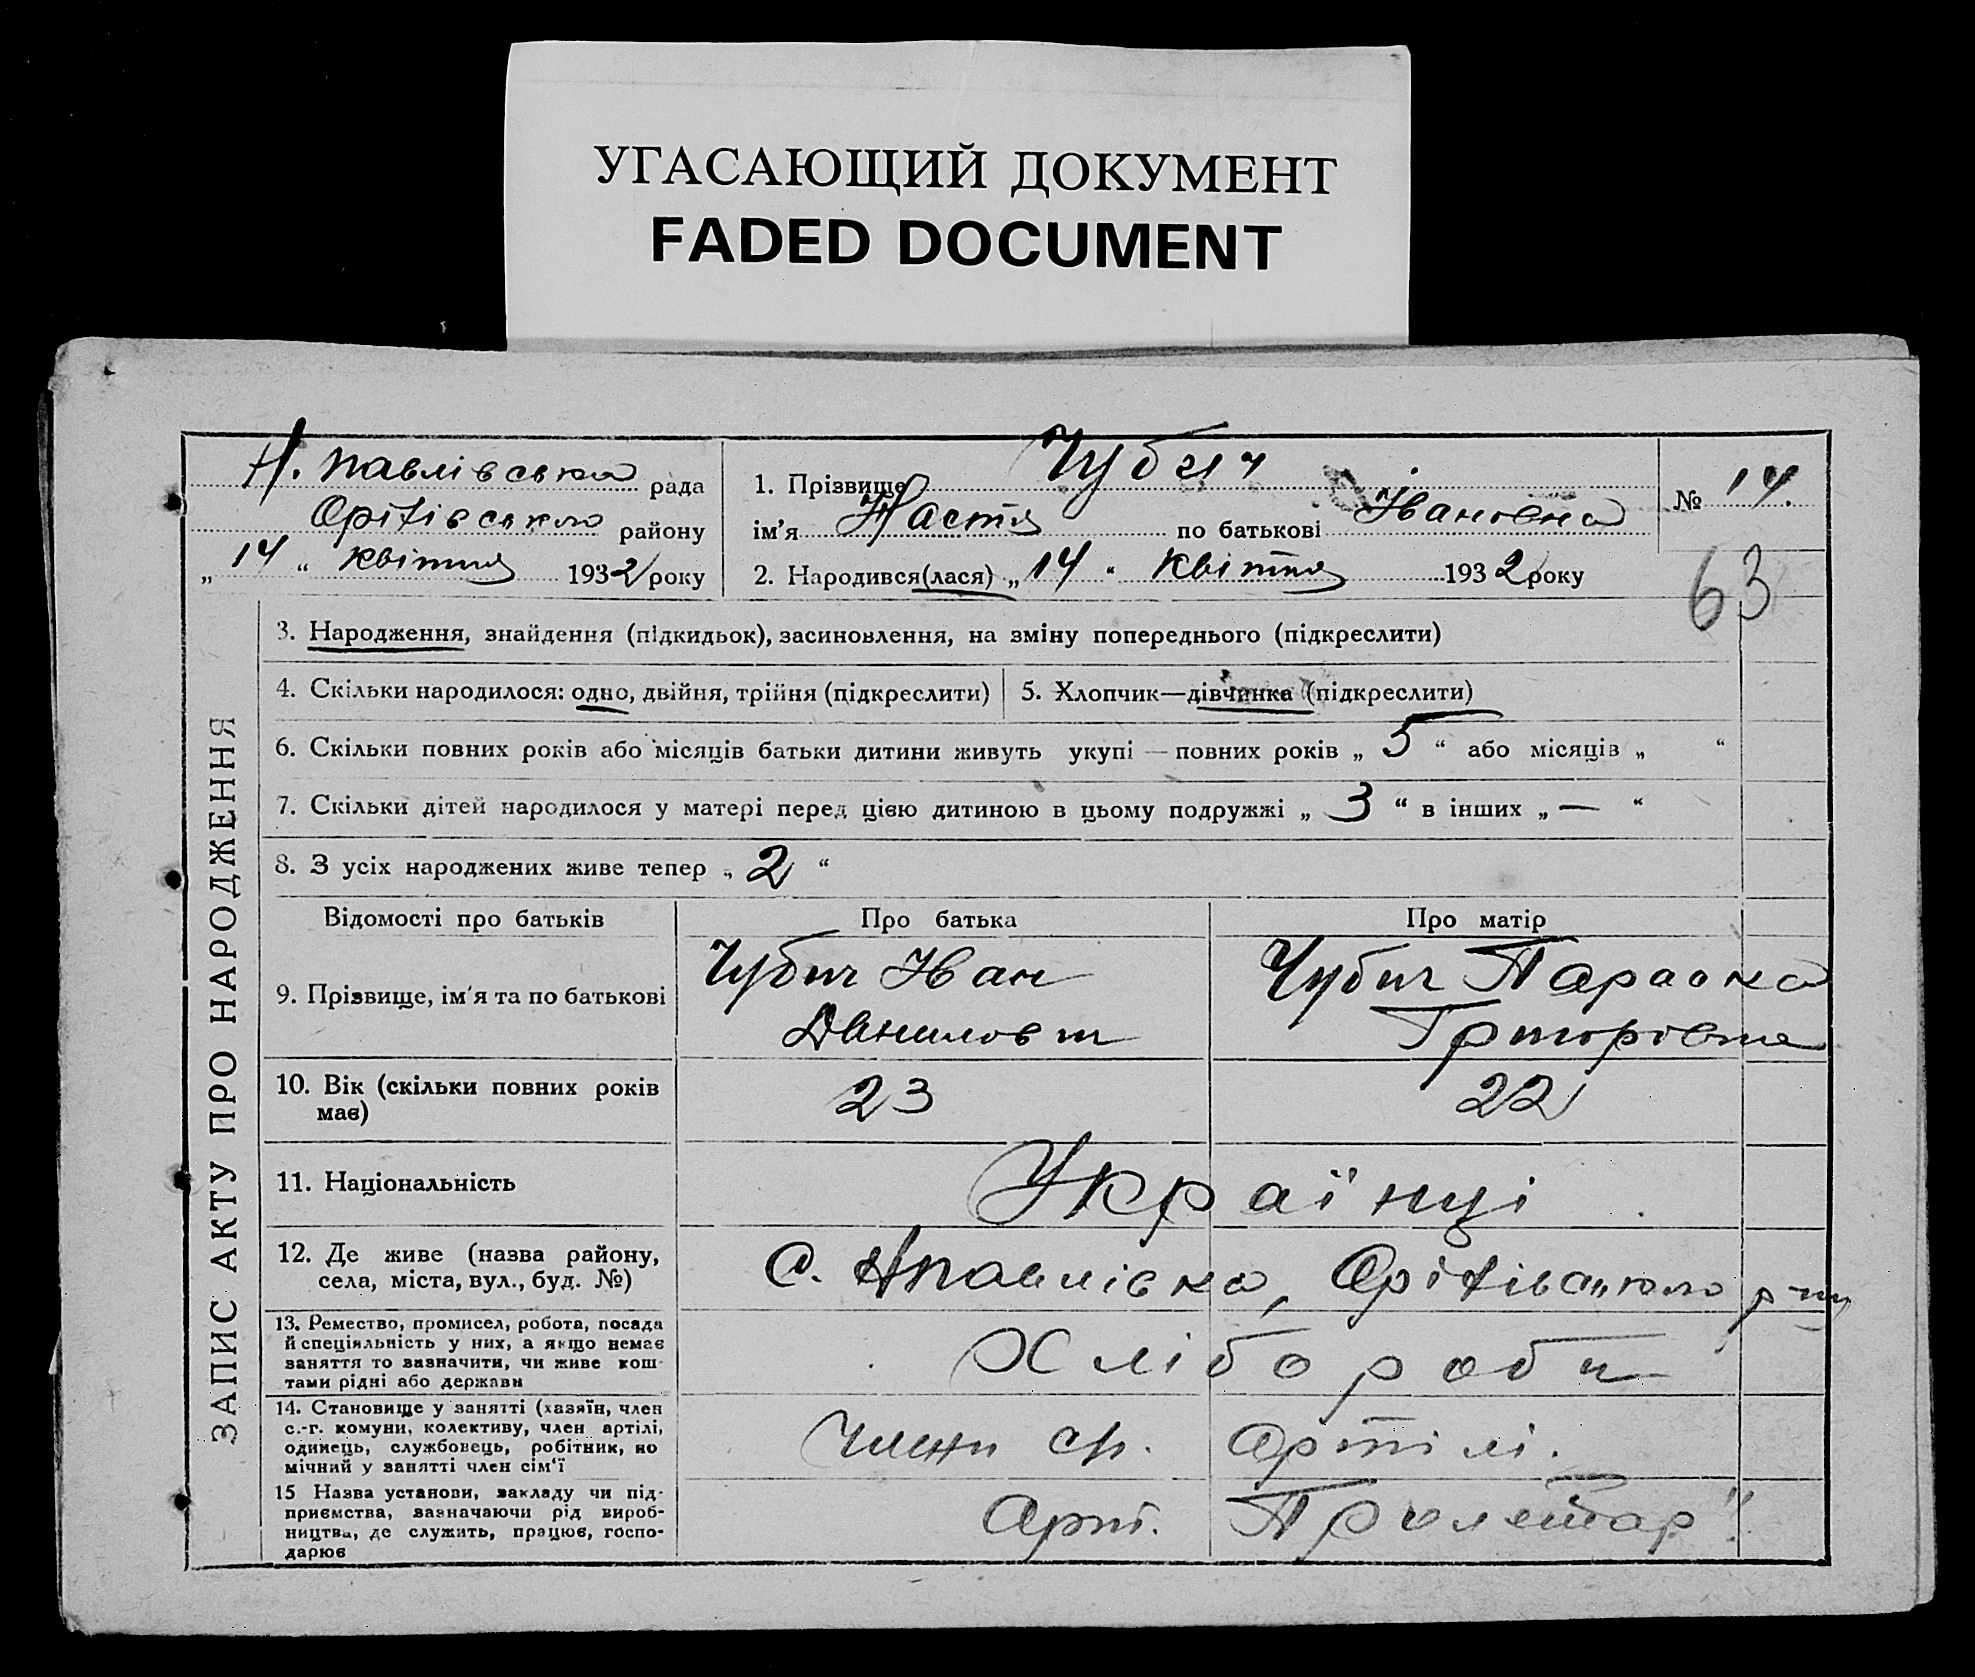 УГАСАЮЩИЙ ДОКУМЕНТ
FADED DOCUMENT
ЗАПИС АКТУ ПРО НАРОДЖЕННЯ
Н. Павлівська рада
району
„ 14 “ квітня 1932 року
1. Прізвище Чубич
ім’я Настя по батькові Івановна
2. Народився(лася) „ 14 “ квітня 1932 року
№ 14.
63
3. Народження, знайдення (підкидьок), засиновлення, на зміну попереднього (підкреслити)
4. Скільки народилося: одно, двійня, трійня (підкреслити)
5. Хлопчик—дівчинка (підкреслити)
6. Скільки повних років або місяців батьки дитини живуть укупі — повних років „ 5 “ або місяців „ “
7. Скільки дітей народилося у матері перед цією дитиною в цьому подружжі „ 3 “ в інших „ — “
8. З усіх народжених живе тепер „ 2 “
Відомості про батьків
Про батька
Про матір
9. Прізвище, ім’я та по батькові
Чубич Іван
Данилович
Чубич Параска
Григорівна
10. Вік (скільки повних років
має)
23
22
11. Національність
Українці
12. Де живе (назва району,
села, міста, вул., буд. №)
с. Нпавлівка,
13. Ремество, промисел, робота, посада
й спеціяльність у них, а якщо немає
заняття то зазначити, чи живе кош-
тами рідні або держави
Хлібороби
14. Становище у занятті (хазяїн, член
с.-г. комуни, колективу, член артілі,
одинець, службовець, робітник, по
мічний у занятті член сім‘ї
члени ср. артілі.
15 Назва установи, закладу чи під-
приємства, зазначаючи рід вироб-
ництва, де служить, працює, госпо-
дарює
Арт. Пролетар"